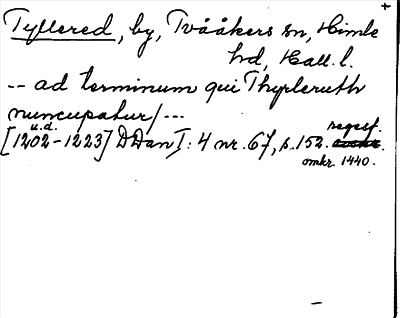 +
Tyllered, by, Tvååkers sn, Himle
hd, Hall. l.
-- ad terminum qui Thyrleruth
nuncupatur/ ---
u.d. regest.
[1202-1223] DDan I: 4 nr. 67, s. 152.
omkr. 1440.